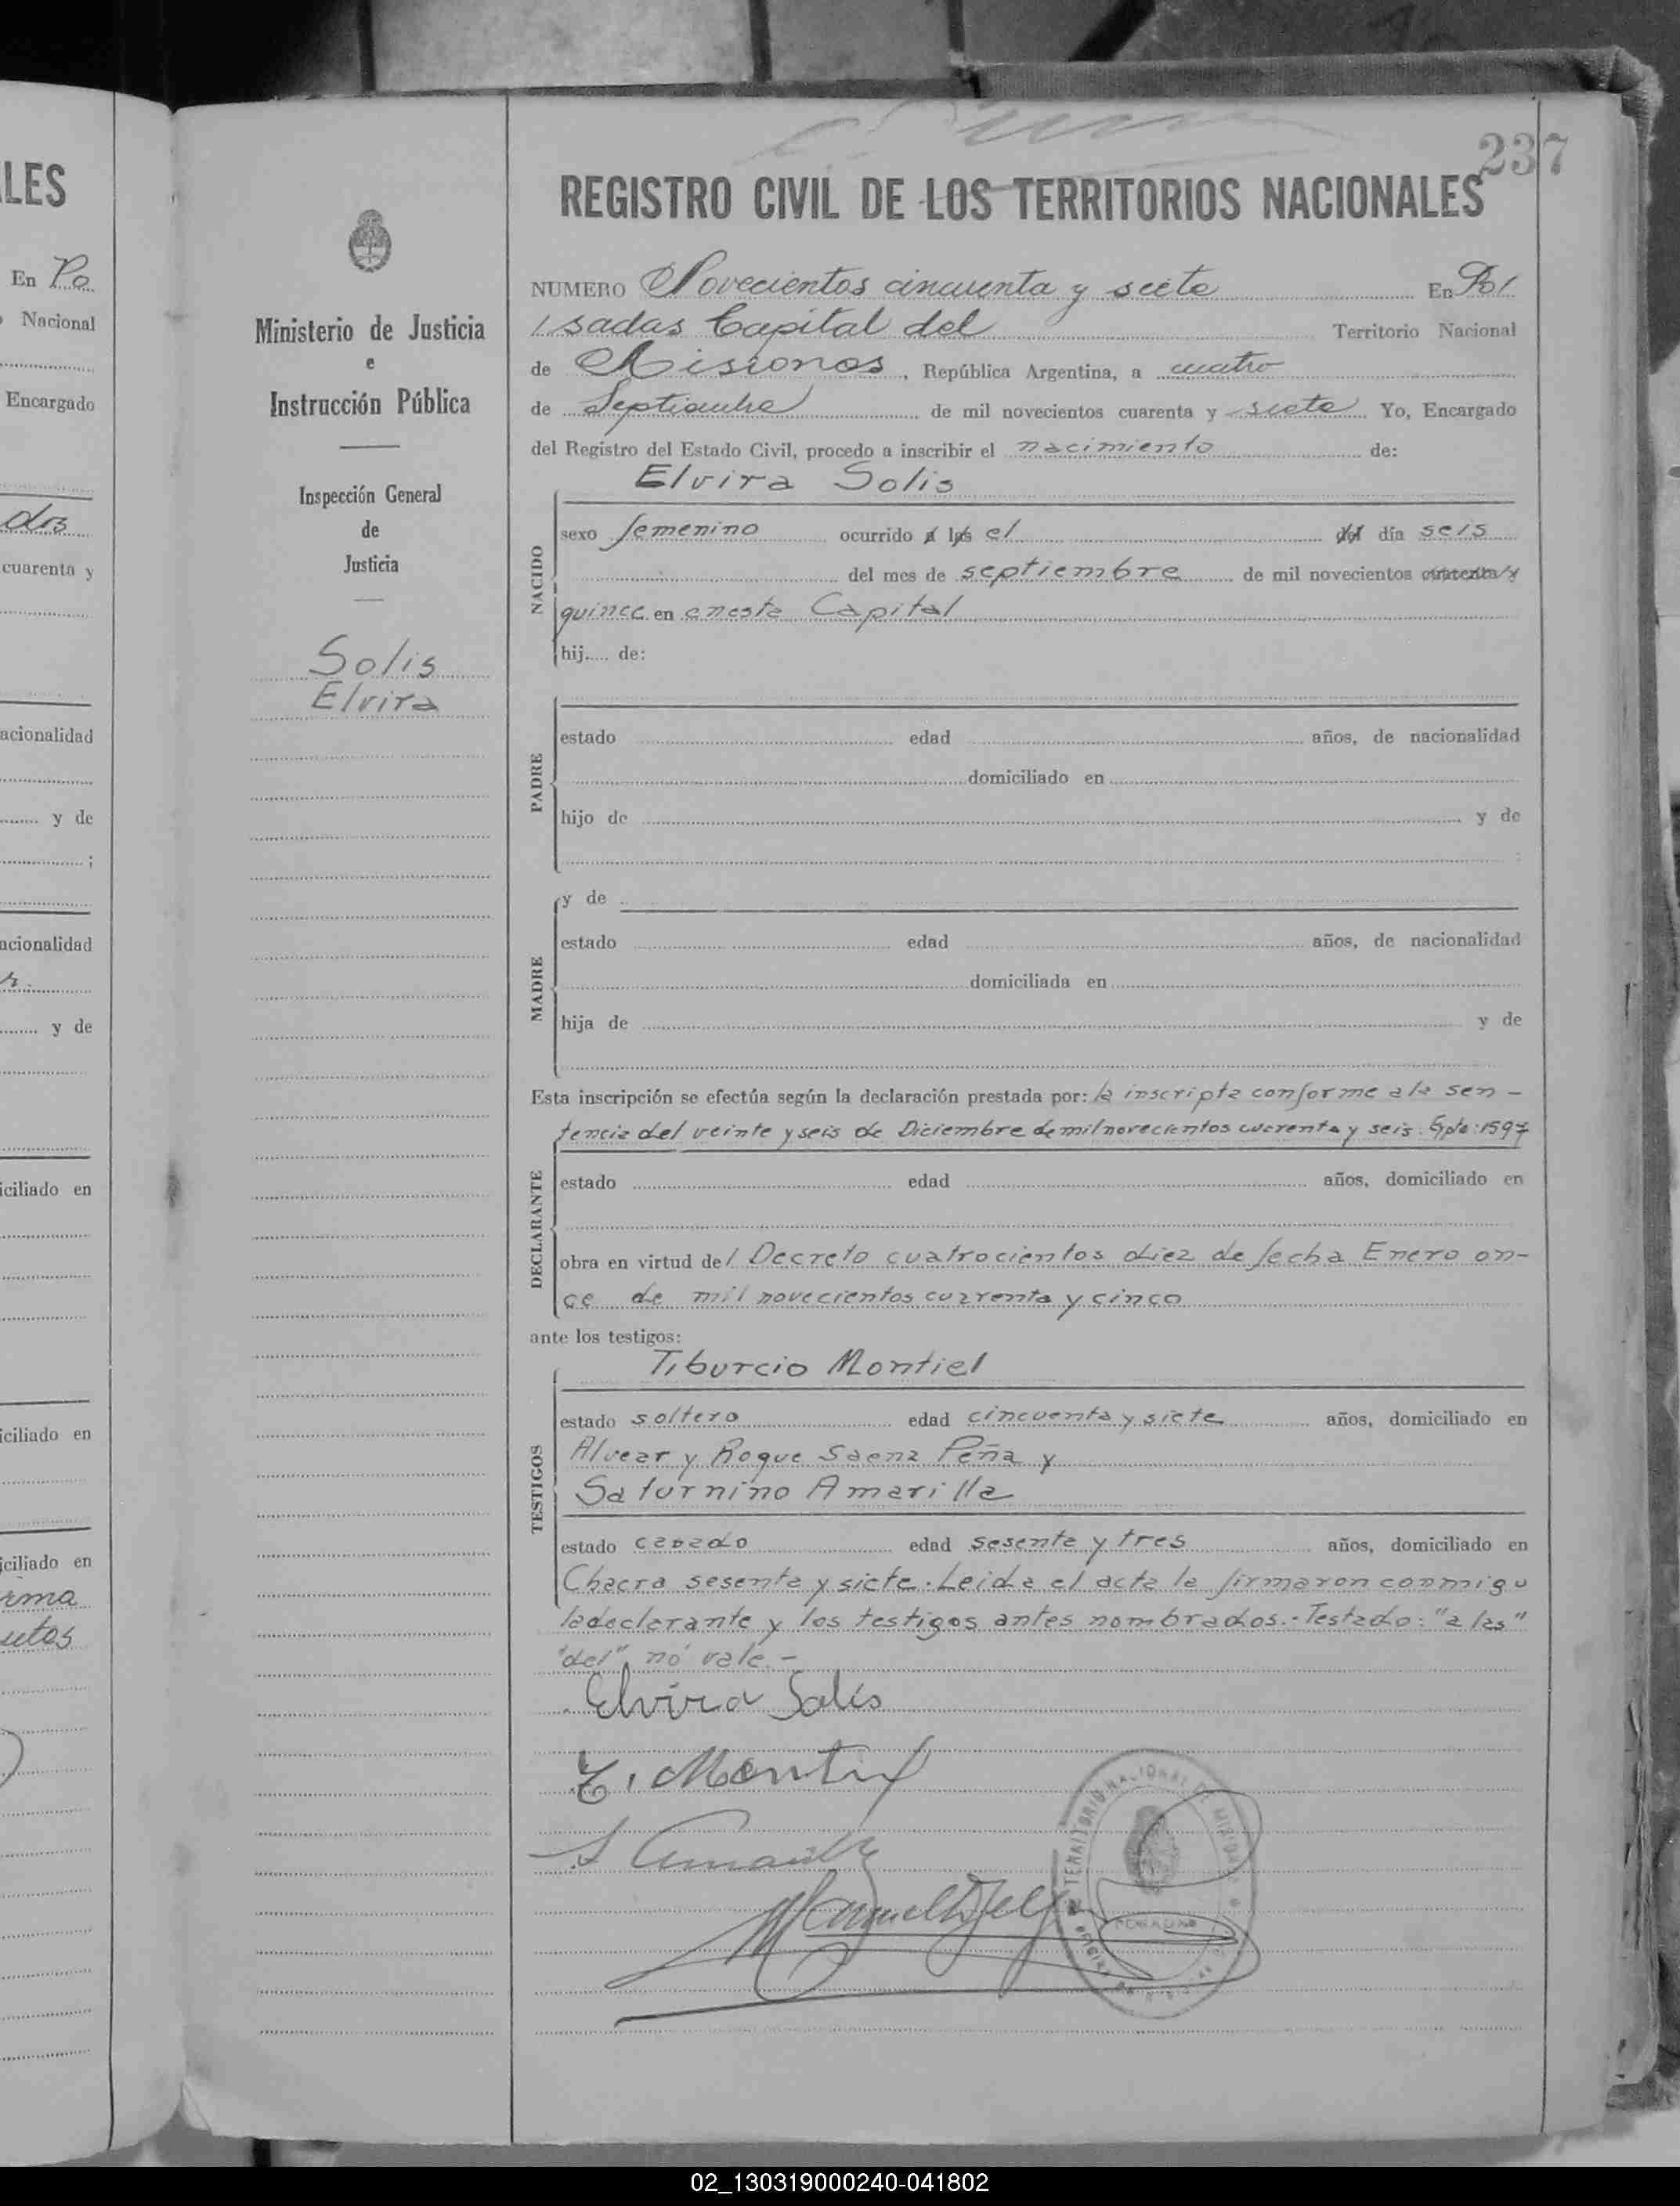 LES
En Po
Nacional
Encargado
dos
cuarenta y
acionalidad
y de
;
acionalidad
y de
iciliado en
iciliado en
iciliado en
irma
utos
Ministerio de Justicia
e
Instrucción Pública
Inspección General
de
Justicia
Solis
Elvira
237
REGISTRO CIVIL DE LOS TERRITORIOS NACIONALES
NUMERO Novecientos cincuenta y siete En Po/
/sadas Capital del Territorio Nacional
de Misiones, República Argentina, a cuatro
de Septiembre de mil novecientos cuarenta y siete Yo, Encargado
del Registro del Estado Civil, procedo a inscribir el nacimiento de:
Elvira Solis
NACIDO
sexo femenino ocurrido a las el del día seis
del mes de septiembre de mil novecientos cuarenta y
quince en eneste Capital
hij..... de:
PADRE
estado edad años, de nacionalidad
domiciliado en
hijo de y de
;
MADRE
y de
estado edad años, de nacionalidad
domiciliada en
hija de y de
Esta inscripción se efectúa según la declaración prestada por: la inscripta conforme a la sen-
tencia del veinte y seis de Diciembre de mil novecientos cuarenta y seis. Expte: 1597
DECLARANTE
estado edad años, domiciliado en
obra en virtud del Decreto cuatrocientos diez de fecha Enero on-
ce de mil novecientos cuarenta y cinco
ante los testigos:
Tiburcio Montiel
TESTIGOS
estado soltero edad cincuenta y siete años, domiciliado en
Alvear y Roque Saenz Peña y
Saturnino Amarilla
estado casado edad sesenta y tres años, domiciliado en
Chacra sesenta y siete. Leida el acta la firmaron conmigo
la declarante y los testigos antes nombrados.- Testado: "a las"
"del" no vale.-
Elvira Solis
T. Montiel
S Amarilla
TERRITORIO NACIONAL DE MISIONES
POSADAS
02_130319000240-041802